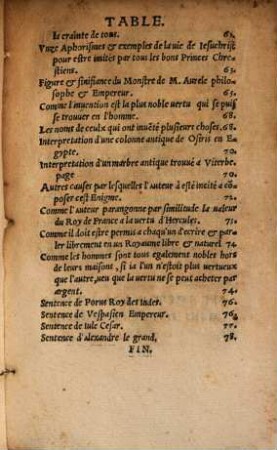 TABLE.
la crainte de tous. 62.
Vnze Aphorismes & exemples de la uie de Iesuchrist
pour estre imitez par tous les bons Princes Chre
stiens. 63.
Figure & sinifiance du Monstre de M. Aurele philo-
sophe & Empereur. 65.
Comme l'inuention est la plus noble uertu qui se puis
se trouuer en l'homme. 68.
Les noms de ceulx qui ont inuẽté plusieurs choses. 68.
Interpretation d'une colonne antique de Osiris en E-
gypte. 70.
Interpretation d'un marbre antique trouué a Viterbe.
page 70.
Autres causes par lesquelles l'auteur à esté incité a cõ
poser cest Enigme. 72.
Comme l'auteur parangonne par similitude la ualeur
du Roy de France a la uertu d'Hercules. 72.
Comme il doit estre permis a chaqu'un d'ecrire & par
ler librement en un Royaume libre & naturel 74.
Comme les hommes sont tous egalement nobles hors
de leurs maisons, si ia l'un n'estoit plus uertueux
que l'autre, ueu que la uertu ne se peut acheter par
argent. 74.
Sentence de Porus Roy des Indes. 76.
Sentence de Vespasien Empereur. 76.
Sentence de Iule Cesar. 77.
Sentence d'Alexandre le grand, 78.
FIN.